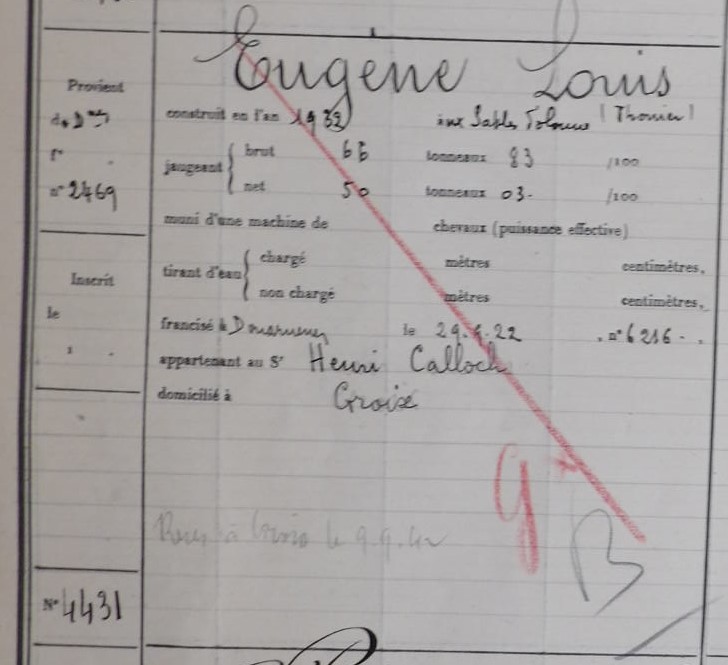 Eugène Louis
Provient
de Dnez construit en l'an 1932 aux Sables d'Olonne (Thonier)
f° jaugeant { brut 66 tonneaux 83 /100
n° 2469 net 50 tonneaux 03 /100
muni d'une machine de chevaux (puissance effective)
Inscrit tirant d'eau { chargé mètres centimètres.
non chargé mètres centimètres.
le francisé à Douarnenez le 29.4.22 n° 6216
appartenant au Sr Henri Calloch
domicilié à Groix
9
B
N° 4431